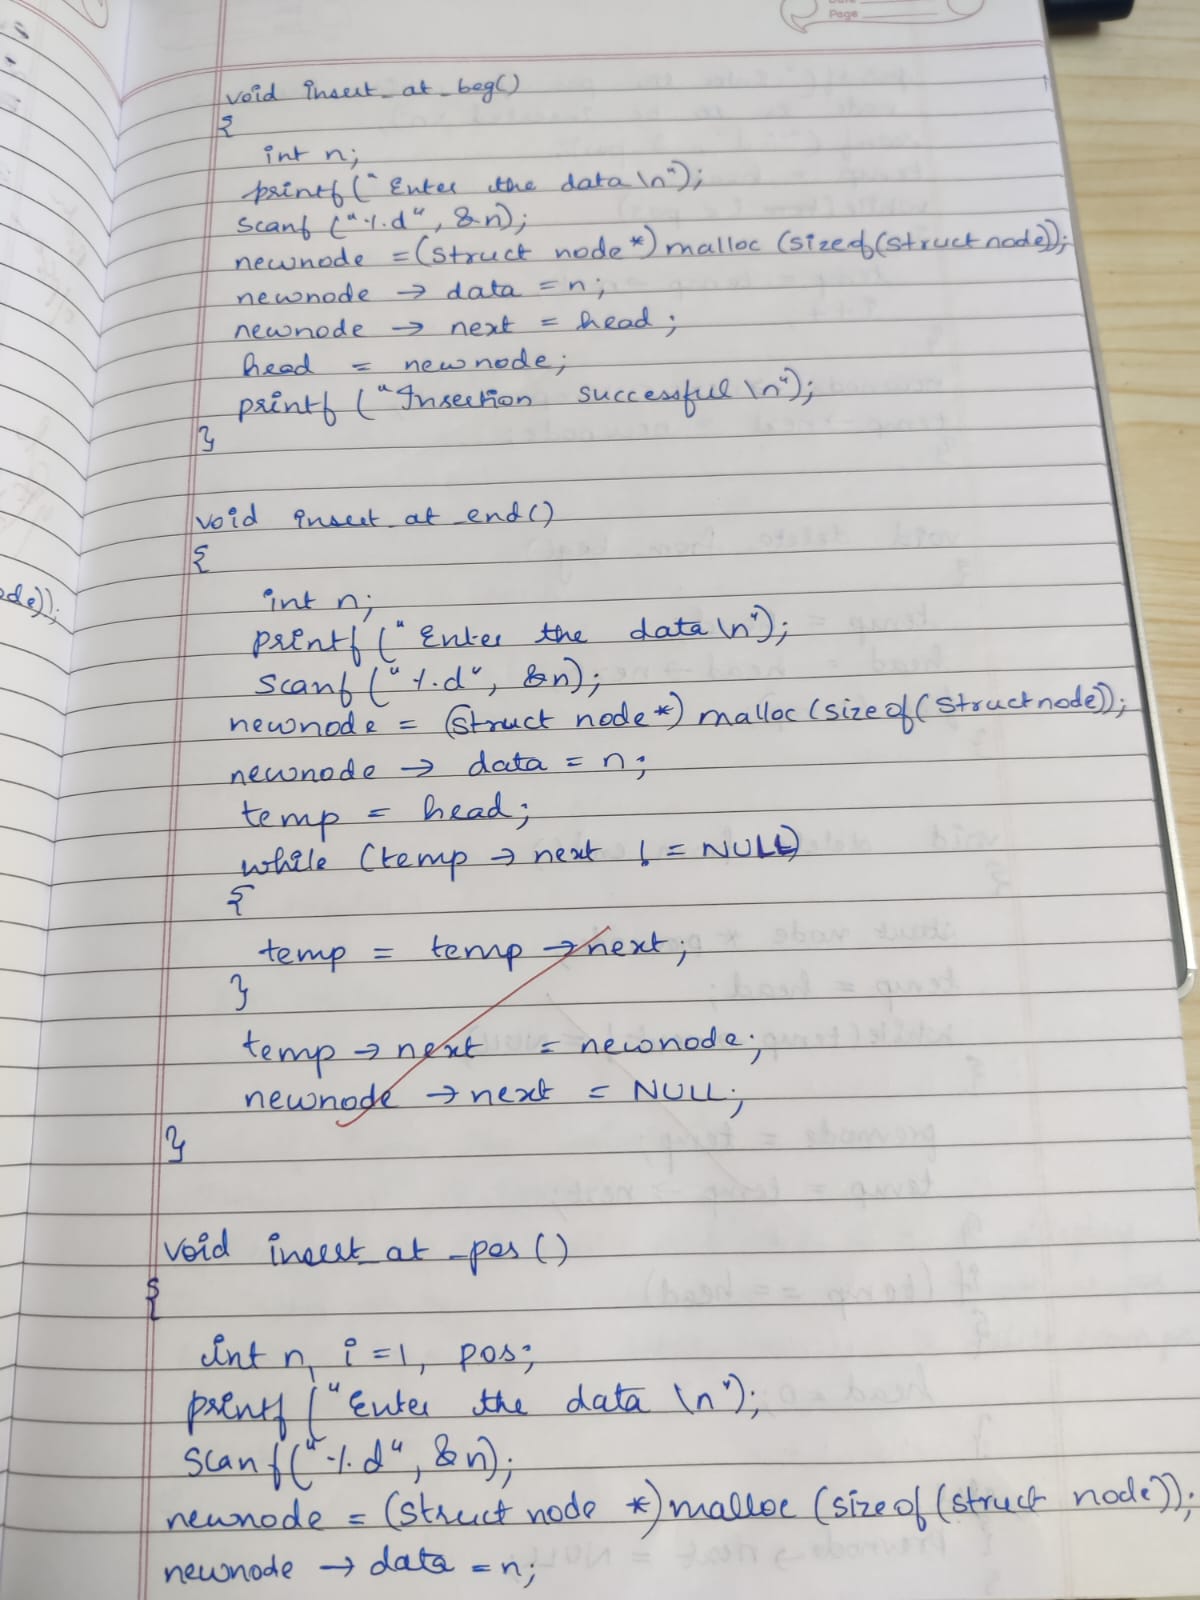 Page
void insert_at_beg()
{
int n;
printf("Enter the data\n");
scanf("%d", &n);
newnode = (struct node*)malloc(sizeof(struct node));
newnode → data = n;
newnode → next = head;
head = newnode;
printf("Insertion successful\n");
}
void insert_at_end()
{
ode));
int n;
printf("Enter the data\n");
scanf("%d", &n);
newnode = (struct node*) malloc(sizeof(struct node));
newnode → data = n;
temp = head;
while (temp → next != NULL)
{
temp = temp → next;
}
temp → next = newnode;
newnode → next = NULL;
}
void insert_at_pos()
{
int n, i=1, pos;
printf("Enter the data \n");
scanf("%d", &n);
newnode = (struct node *)malloc(sizeof(struct node));
newnode → data = n;